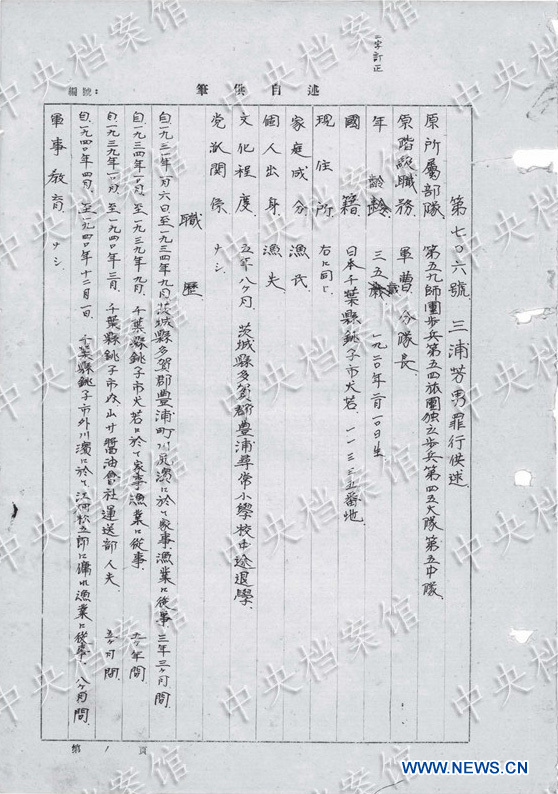 一字訂正
編號：
筆供自述
第七〇六號 三浦芳男罪行供述
原所屬部隊 第五九師團步兵第五四旅團独立步兵第四五大隊第五中隊.
原階級職務 軍曹 分隊長
年齡 三五歳 一九二〇年二月一〇日生
國籍 日本千葉縣銚子市犬若. 一一三三五番地
現住所 右に同じ
家庭成分 漁民
個人出身 漁夫
文化程度 五年八ヶ月 茨城縣多賀郡豊浦尋常小學校中途退學.
党派関係 ナシ.
職歷
自一九三一年 六日至一九三四年九月茨城縣多賀郡豊浦町川尻濱に於て家事漁業に從事 三年三ヶ月間
自一九三四年 月至一九三九年九月. 千葉縣銚子市犬若に於て家事漁業に從事. 五ヶ年間
自一九三九年一〇月. 至一九四〇年三月. 千葉縣銚子市 山サ醬油會社運送部人夫. 五ヶ月間
自一九四〇年四月. 至一九四〇年十二月一日. 千葉縣銚子市外川濱に於て 松五郎に傭れ漁業に從事. 八ヶ月間.
軍事教育. ナシ
第 1 頁
中央档案馆
WWW.NEWS.CN